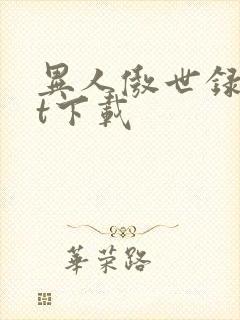 異人傲世録
t下載
華荣路